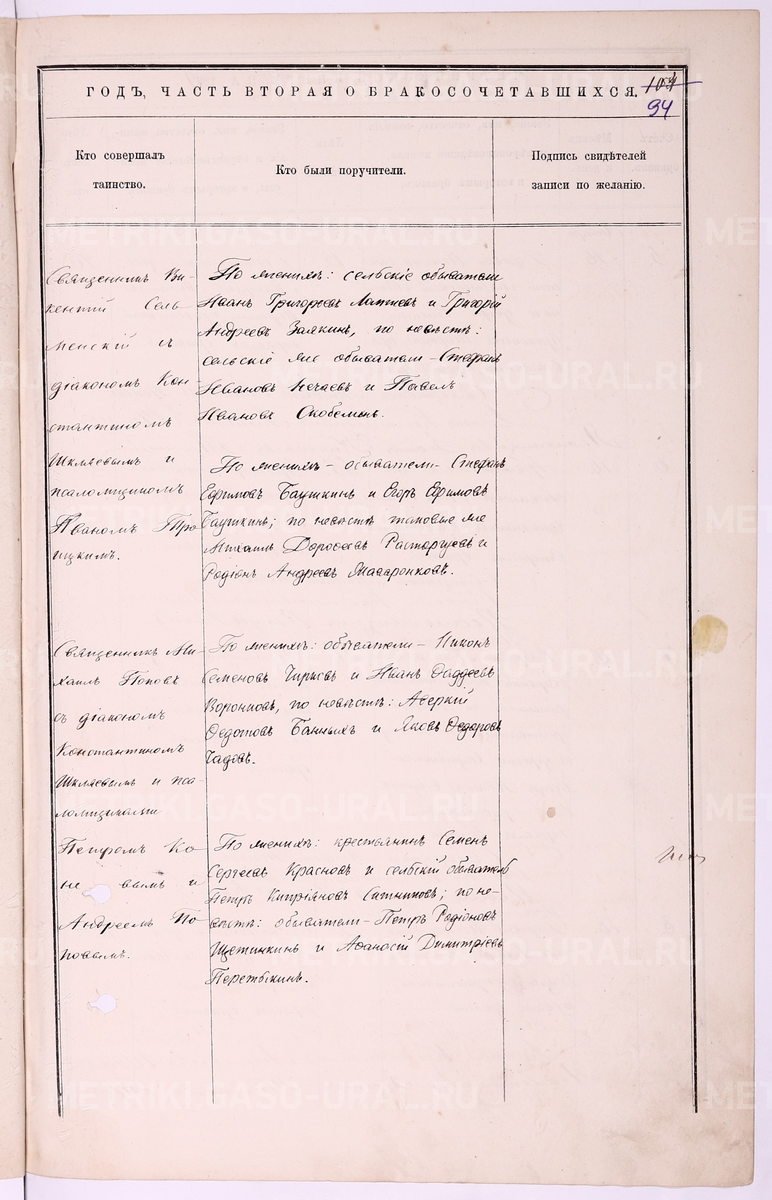 ГОДЪ, ЧАСТЬ ВТОРАЯ О БРАКОСОЧЕТАВШИХСЯ.
94
Кто совершалъ
таинство.
Кто были поручители.
Подпись свидѣтелей
записи по желанію.
Священникъ Ви-
кентій Сель-
менскій съ
діакономъ Кон-
стантиномъ
Шкляевымъ и
псаломщикомъ
Иваномъ Тро-
ицкимъ.
По женихѣ: сельскіе обыватели
Иванъ Григорьевъ Лаптевъ и Григорій
Андреевъ Заякинъ, по невѣстѣ:
сельскіе же обыватели – Стефанъ
Ивановъ Нечаевъ и Павелъ
Ивановъ Скобелинъ.
По женихѣ – обыватели – Стефанъ
Ефимовъ Баушкинъ и Егоръ Ефимовъ
Баушкинъ; по невѣстѣ таковые же
Михаилъ Дороѳеевъ Расторгуевъ и
Родіонъ Андреевъ Макаронковъ.
Священникъ Ми-
хаилъ Поповъ
съ діакономъ
Константиномъ
Шкляевымъ и пса-
ломщиками
Петромъ Ко-
вымъ и
Андреемъ По-
повымъ.
По женихѣ: обыватели – Никонъ
Семеновъ Чирковъ и Иванъ Ѳаддеевъ
Воронковъ, по невѣстѣ: Аверкій
Ѳедотовъ Банныхъ и Яковъ Ѳедоровъ
Чадовъ.
По женихѣ: крестьянинъ Семенъ
Сергеевъ Красновъ и сельскій обыватель
Петръ Кипріяновъ Ситниковъ; по не-
вѣстѣ: обыватели – Петръ Родіоновъ
Щетинкинъ и Аѳанасій Димитріевъ
Перетыкинъ.
METRIKI.GASO-URAL.RU